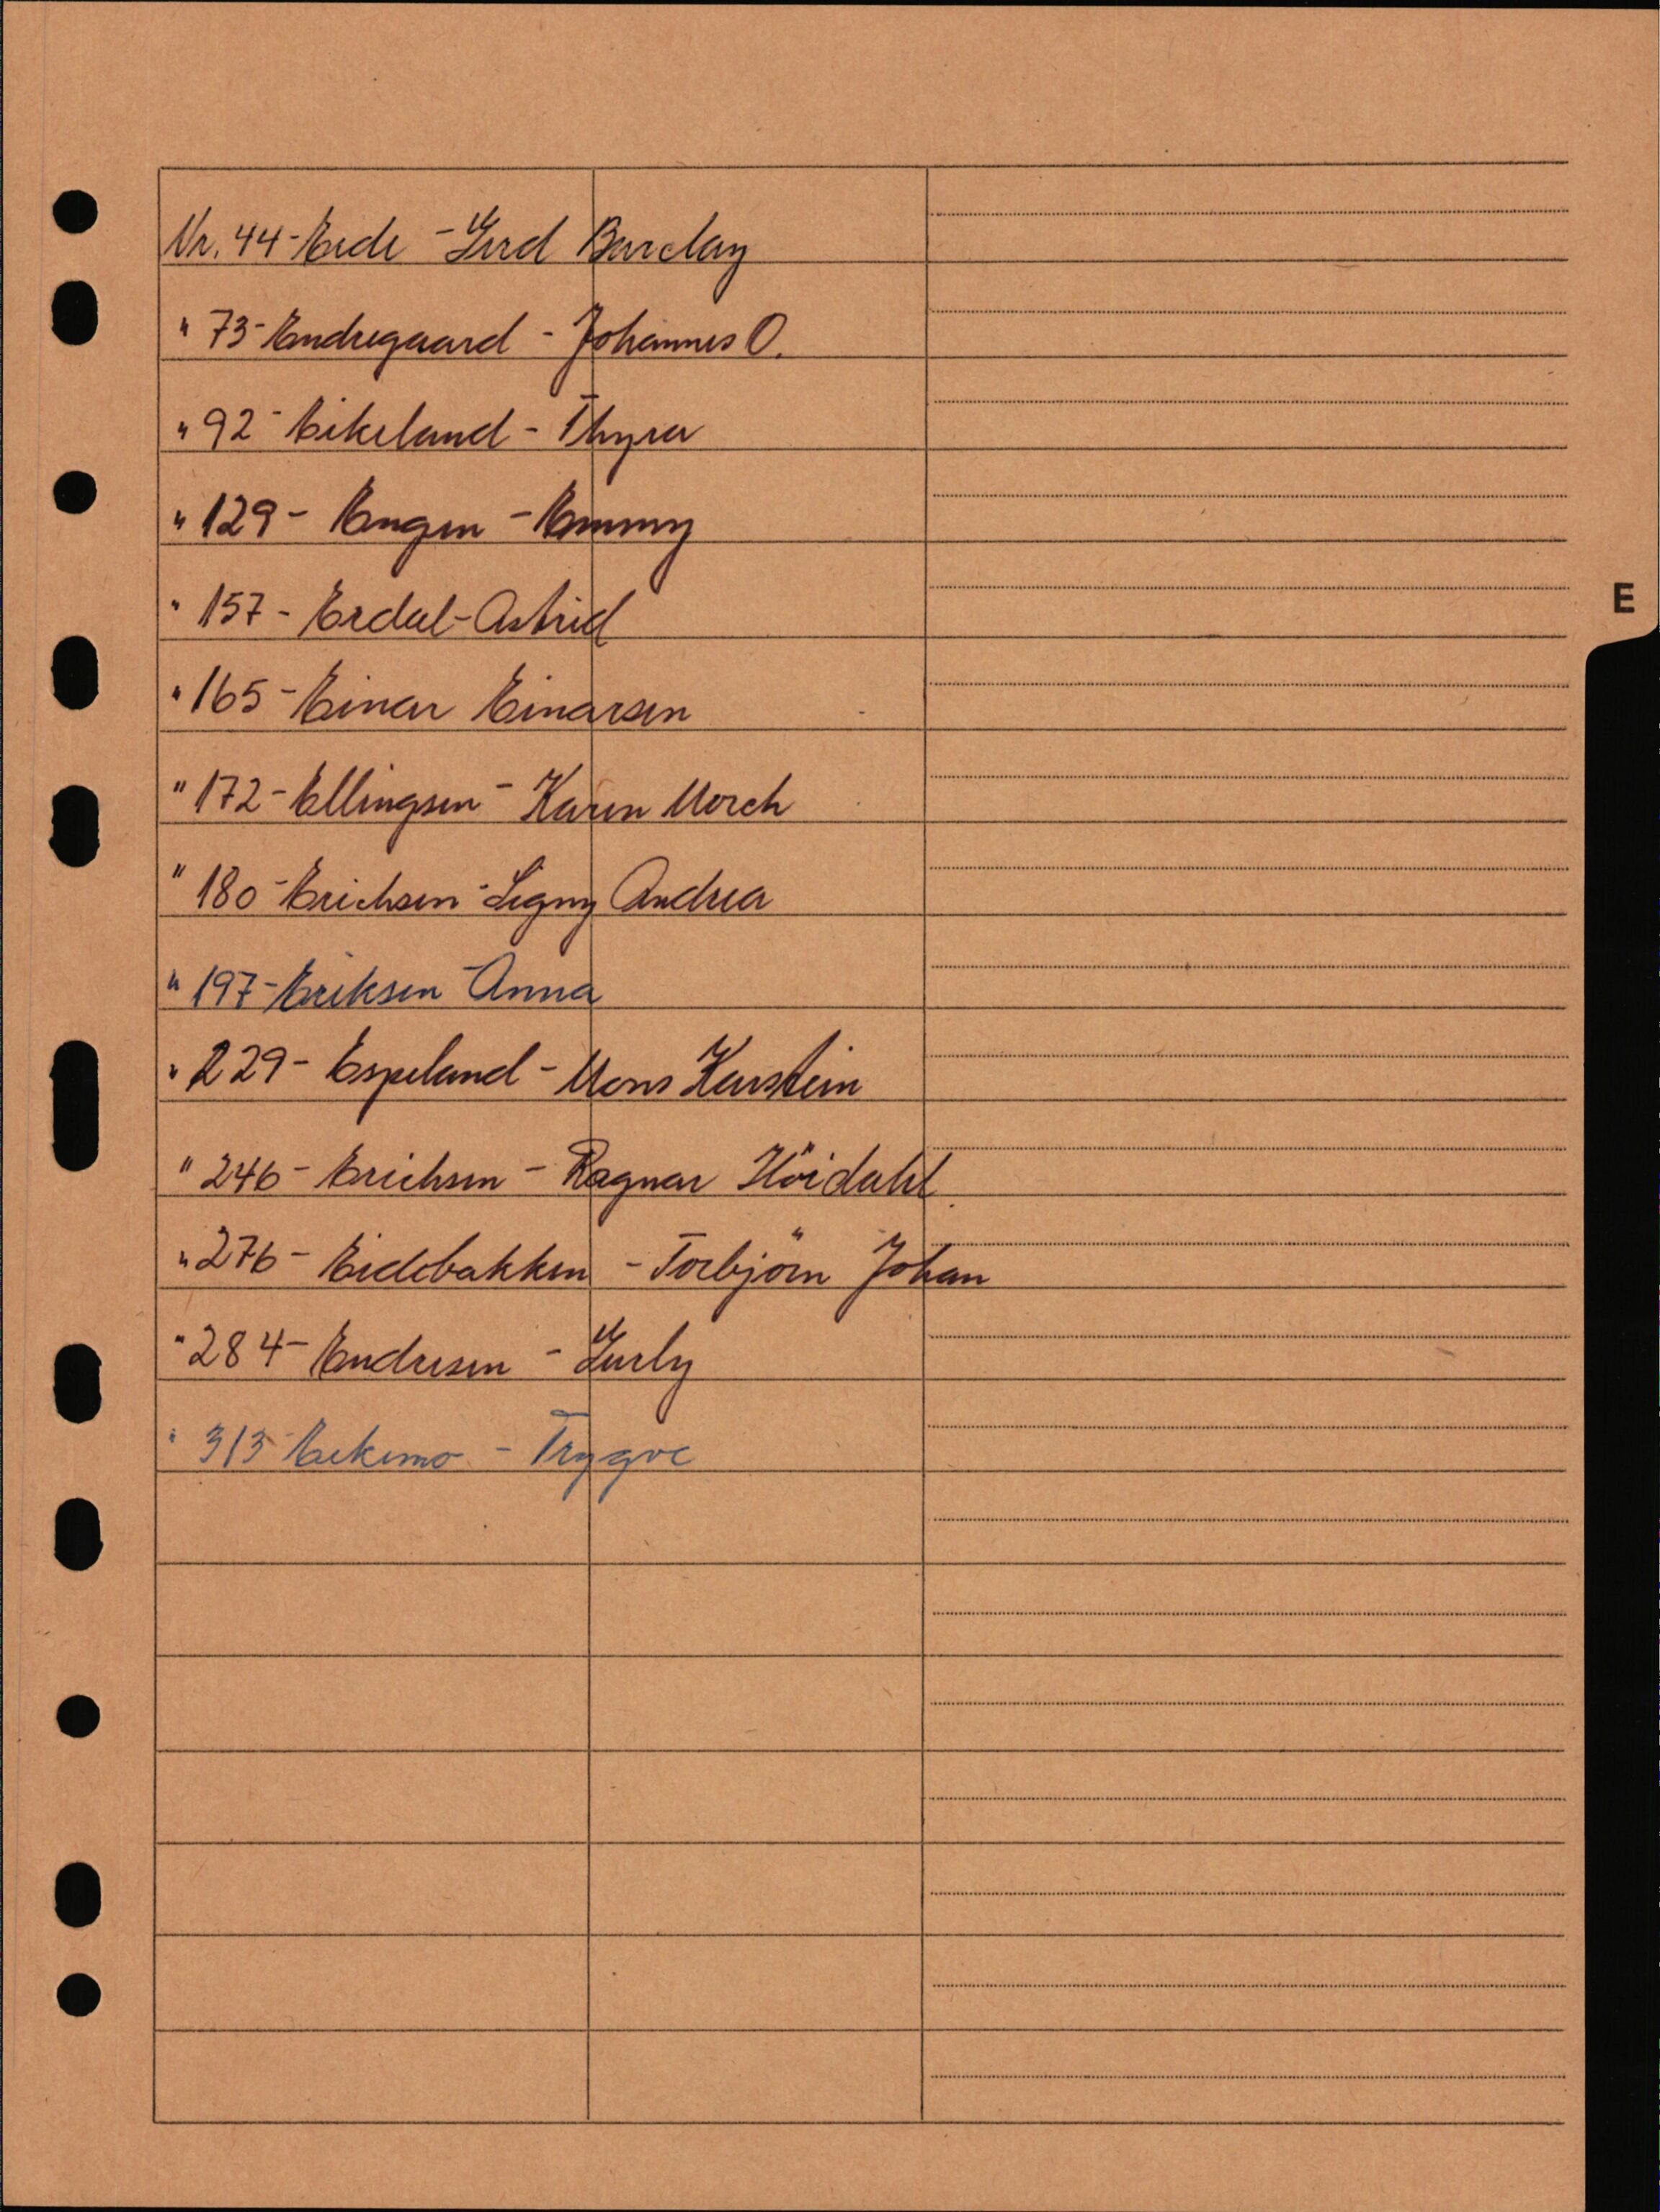 Nr. 44 - Eide - Gerd Barclay
" 73 - Endregaard - Johannes O.
" 92 - Eikeland - Thyra
" 129 - Engen - Emmy
" 157 - Erdal - Astrid
E
" 165 - Einar Einarsen
" 172 - Ellingsen - Karen Morch
" 180 - Erichsen - Signy Andrea
" 197 - Eriksen - Anna
" 229 - Espeland - Mons Karstein
" 246 - Erichsen - Ragnar Höidahl
" 276 - Eidebakken - Torbjörn Johan
" 284 - Endresen - Gurly
" 313 - Eikemo - Trygve